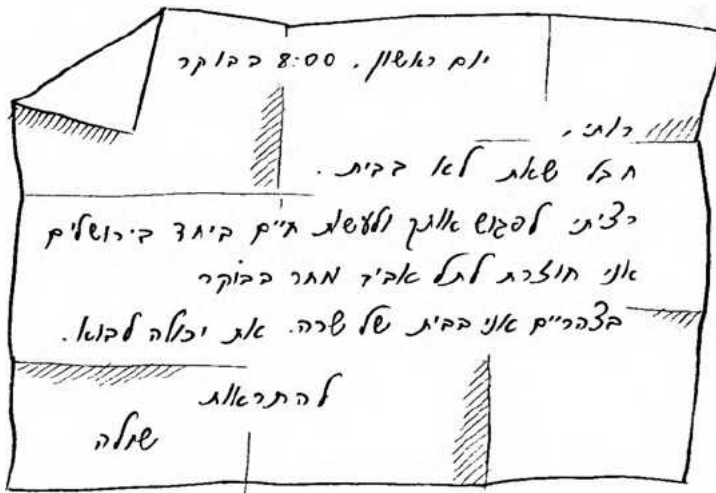 יום ראשון, 8:00 בבוקר
רותי,
חבל שאת לא בבית.
רציתי לפגוש אותך ולעשות חיים ביחד בירושלים
אני חוזרת לתל אביב מחר בבוקר
בצהריים אני בבית של שרה. את יכולה לבוא.
להתראות
שולה